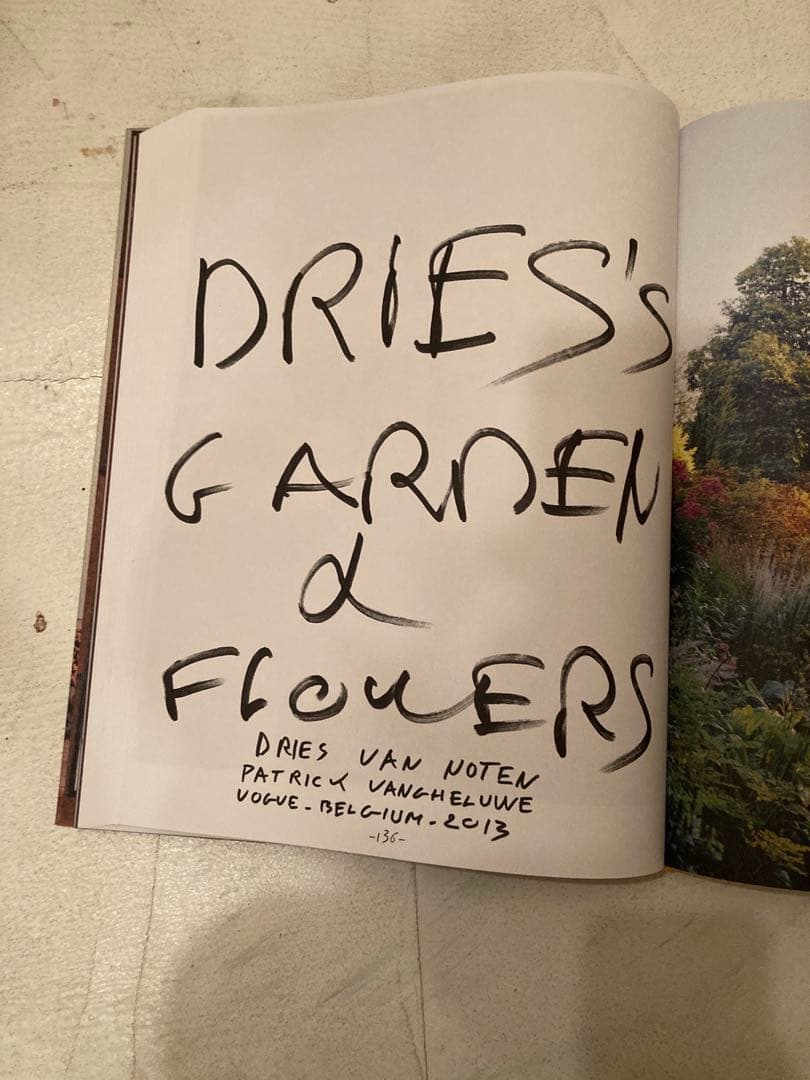 DRIES'S
GARDEN
&
FLOWERS
DRIES VAN NOTEN
PATRICK VANGHELUWE
VOGUE-BELGIUM-2013
-136-